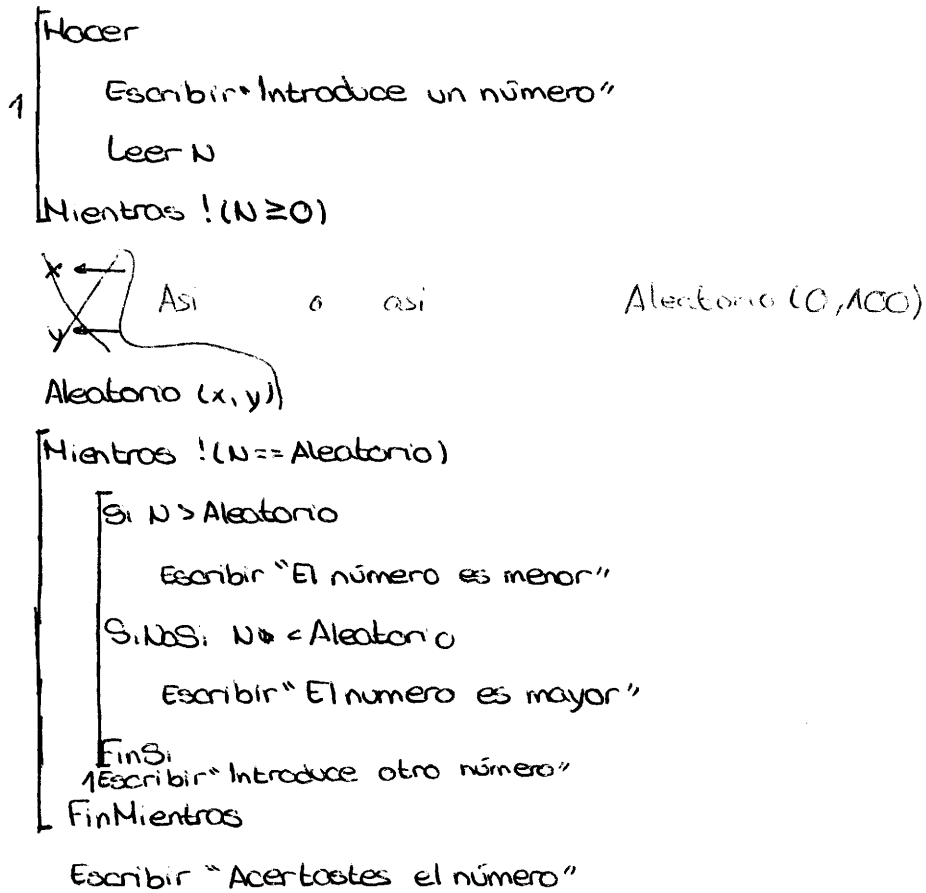 Hacer
Escribir "Introduce un número"
1
Leer N
Mientras !(N≥0)
x ←
Así o así Aleatorio (0,100)
y ←
Aleatorio (x, y)
Mientras !(N==Aleatorio)
Si N > Aleatorio
Escribir "El número es menor"
SiNoSi N < Aleatorio
Escribir "El numero es mayor"
FinSi
1 Escribir "Introduce otro número"
FinMientras
Escribir "Acertastes el número"